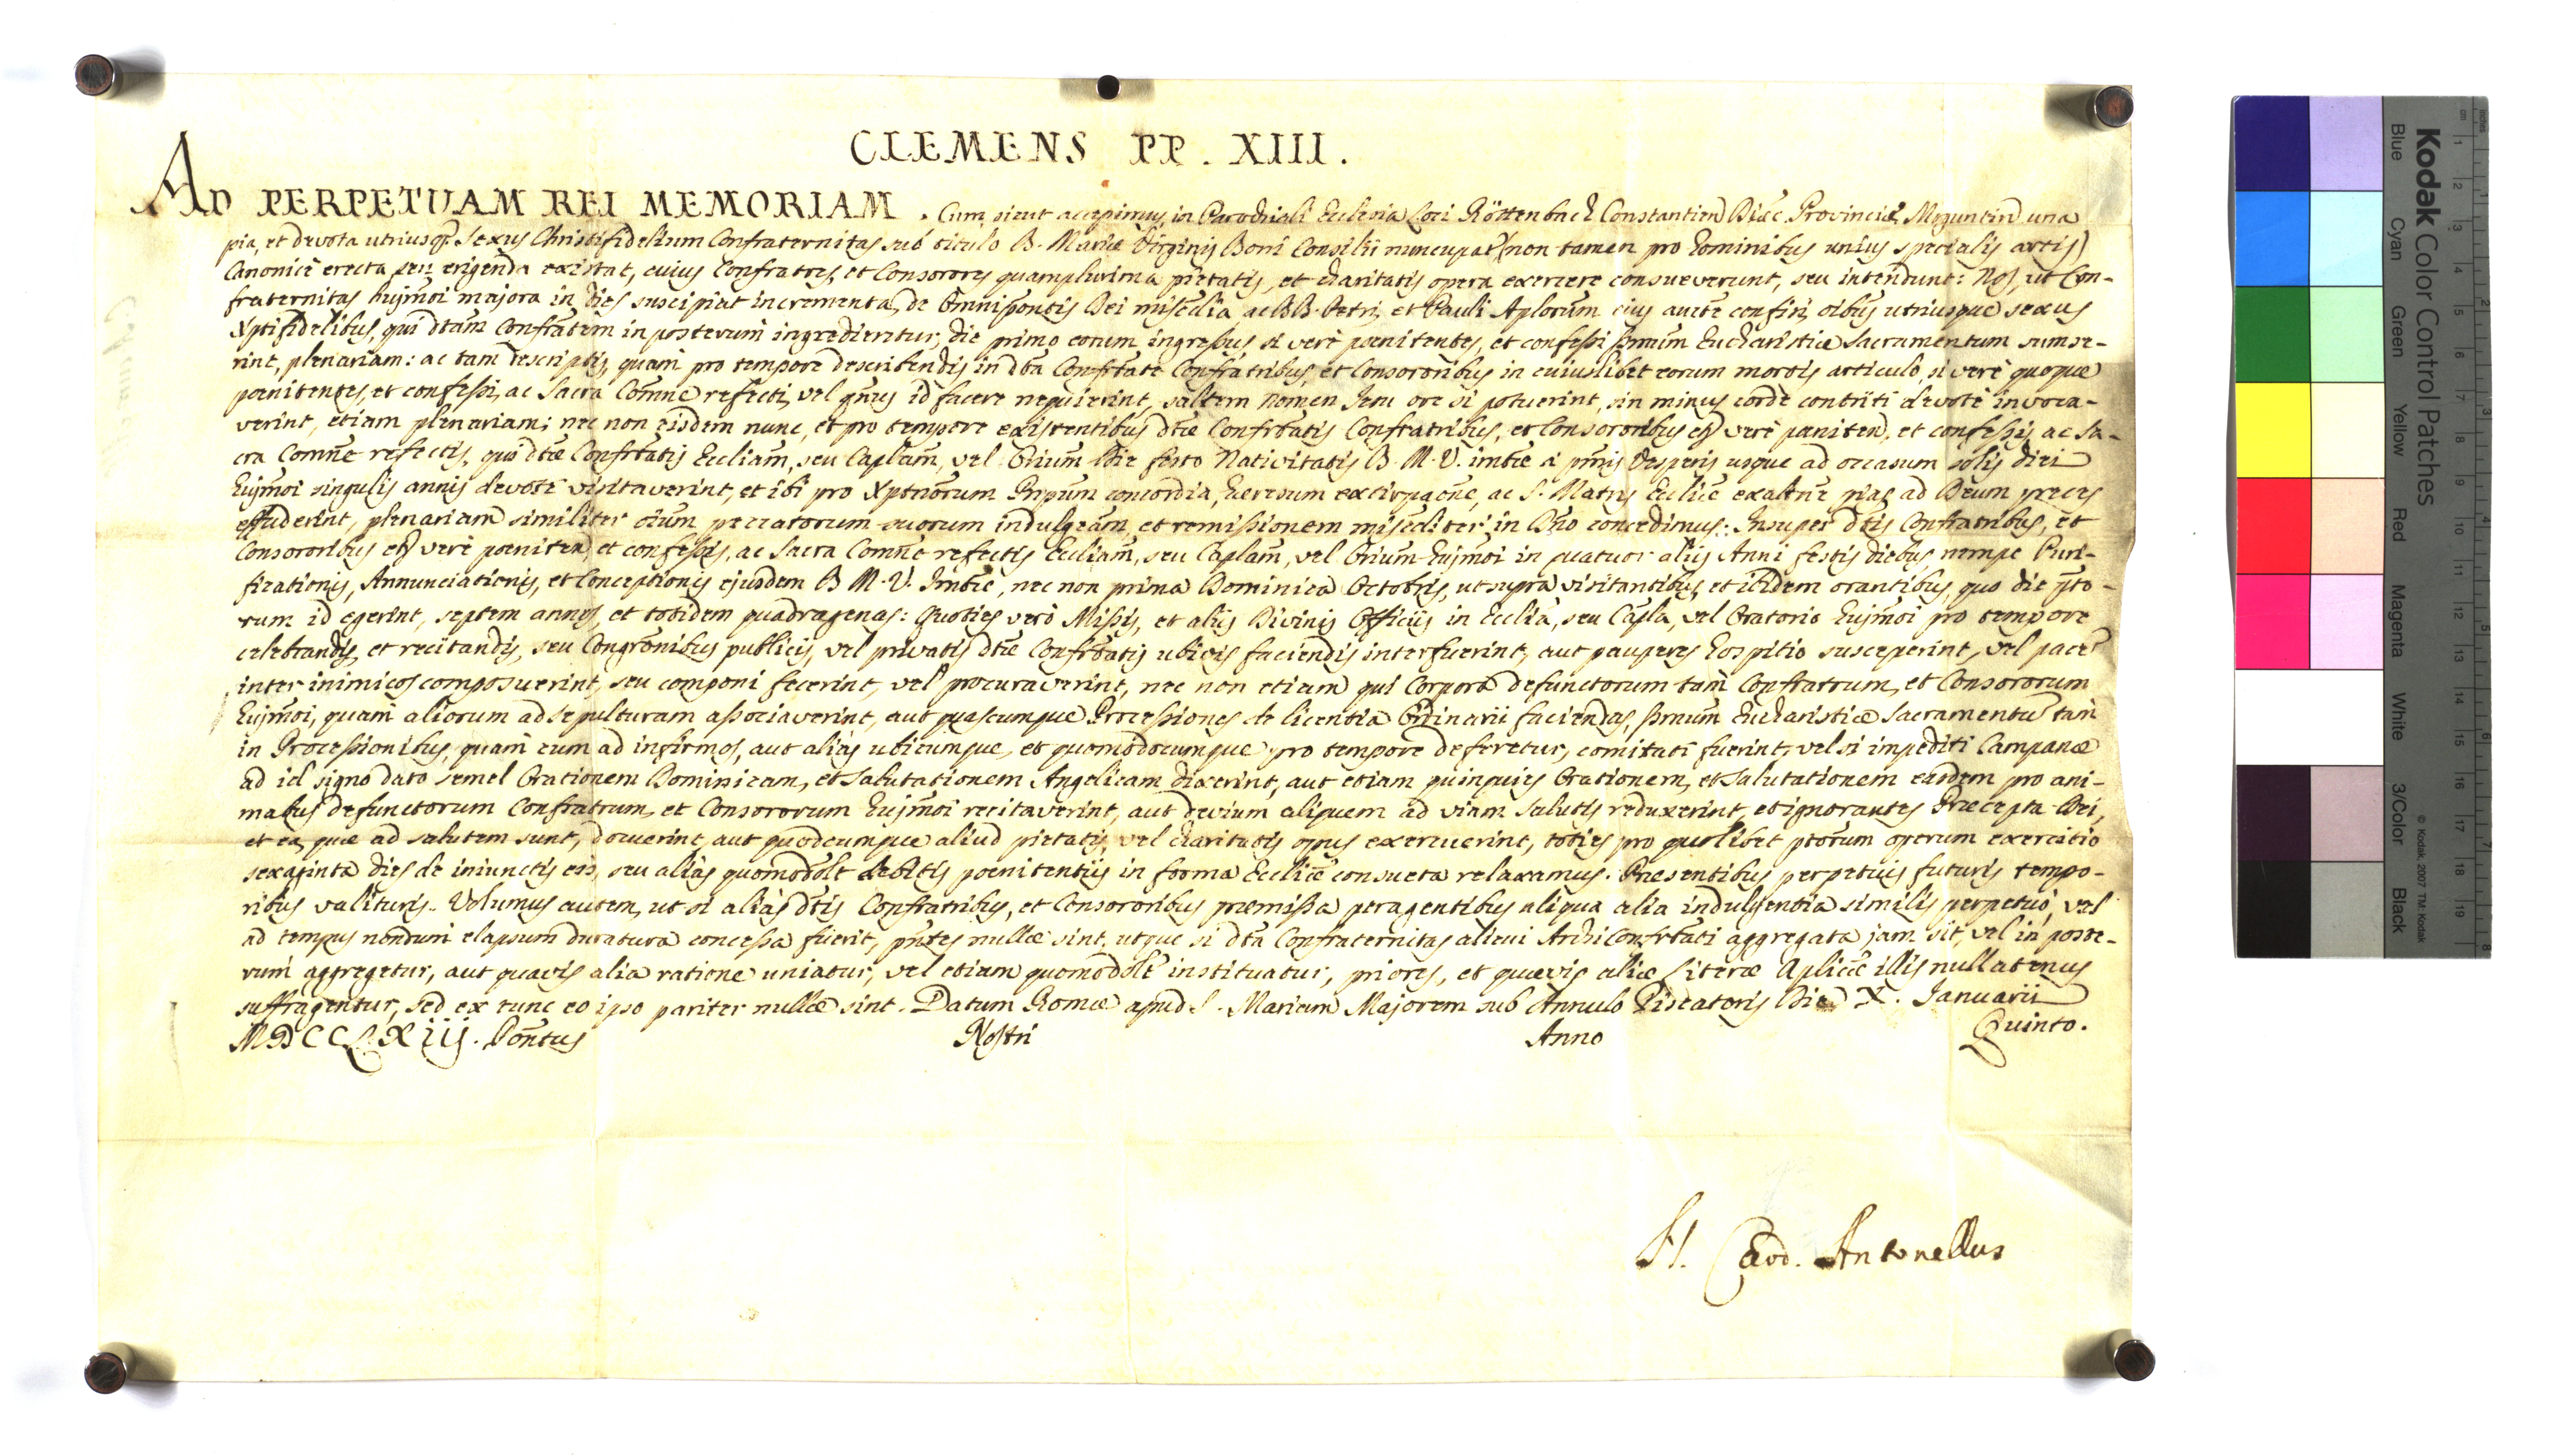 CLEMENS PP. XIII.
AD PERPETUAM REI MEMORIAM. Cum sicut accepimus in Parochiali Ecclesia Loci Röttenbach Constantien Diȩc Provinciæ Moguntin una
pia, et devota utriusq. Sexus Christifidelium Confraternitas sub titulo B. Mariæ Virginis Boni Consilii nuncupat (non tamen pro hominibus unius specialis artis)
Canonicè erecta seu erigenda existat, cuius Confratres, et Consorores quamplurima pietatis, et charitatis opera exercere consueverunt, seu intendunt: Nos, ut Con-
fraternitas hujmõi majora in dies suscipiat incrementa, de Omnipontis Dei misedia ac BB. Petri, et Pauli Aplorum eius aucte confisi, oibus utriusque sexus
Xptifidelibus, qui dtam Confratem in posterum ingredientur, die primo eorum ingressus si verè poenitentes, et confessi ssmum Eucharistiæ Sacramentum sumse-
rint, plenariam: ac tam descriptis, quam pro tempore describendis in dta Confrtate Confratribus, et Consororibus in cuiuslibet eorum mortis articulo, si verè quoque
poenitentes, et confessi, ac Sacra Comne refecti, vel qtnus id facere nequierint, saltem nomen Jesu ore si potuerint, sin minus corde contriti devotè invoca-
verint, etiam plenariam; nec non eisdem nunc, et pro tempore existentibus dtæ Confrtatis Confratribus, et Consororibus et verè poeniten, et confessis, ac Sa-
cra Comne refectis, qui dtæ Confrtatis Eccliam, seu Caplam, vel Orium Die festo Nativitatis B. M. V. imtæ a pmis Vesperis usque ad occasum solis diei
hujmõi singulis annis devotè visitaverint, et ibi pro Xptnorum Pnpum concordia, heresum extirpacne, ac S. Matris Eccliæ exaltne pias ad Deum preces
effuderint, plenariam similiter oium peccatorum suorum indulgeam, et remissionem miseditèr in Dno concedimus: Insuper dtis Confratribus, et
Consororibus et verè poeniten, et confessis, ac Sacra Comne refectis Eccliam, seu Caplam, vel Orium hujmõi in quatuor aliis Anni festis diebus, nempe Puri-
ficationis, Annunciationis, et Conceptionis ejusdem B. M. V. Imtæ, nec non prima Dominica Octobris, ut supra visitantibus, et ibidem orantibus, quo die pto-
rum id egerint, septem annos, et totidem quadragenas: Quoties verò Missis, et aliis Divinis Officiis in Ecclia, seu Capla, vel Oratorio hujmõi pro tempore
celebrandis, et recitandis, seu Congronibus publicis, vel privatis dtæ Confrtatis ubivis faciendis interfuerint, aut pauperes hospitio susceperint, vel pace
inter inimicos composuerint, seu componi fecerint, vel procuraverint, nec non etiam qui Corpora defunctorum tam Confratrum, et Consororum
hujmõi, quam aliorum ad sepulturam associaverint, aut quascumque Processiones de licentia Ordinarii faciendas, ssmum Eucharistiæ Sacramentu tam
in Processionibus, quam cum ad infirmos, aut alias ubicumque, et quomodocumque pro tempore deferetur, comitati fuerint, vel si impediti Campanæ
ad id signo dato semel Orationem Dominicam, et Salutationem Angelicam dixerint, aut etiam quinquies Orationem, et Salutationem easdem pro ani-
mabus defunctorum Confratrum, et Consororum hujmõi recitaverint, aut devium aliquem ad viam salutis reduxerint, et ignorantes Præcepta Dei,
et ea, quæ ad salutem sunt, docuerint, aut quodcumque aliud pietatis, vel charitatis opus exercuerint, toties pro quolibet ptorum operum exercitio
sexaginta dies de iniunctis eis, seu alias quomodolt debitis poenitentiis in forma Eccliæ consueta relaxamus. Præsentibus perpetuis futuris tempo-
ribus valituris. Volumus autem, ut si alias dtis Confratribus, et Consororibus præmissa peragentibus aliqua alia indulgentia similis perpetuò, vel
ad tempus nondum elapsum duratura concessa fuerit, pntes nullæ sint, utque si dta Confraternitas alicui Archiconfrtati aggregata jam sit, vel in poste-
rum aggregetur, aut quavis alia ratione uniatur, vel etiam quomodolt instituatur, priores, et quævis aliæ Literæ Aplicæ illis nullatenus
suffragentur, sed ex tunc eo ipso pariter nullæ sint. Datum Romæ apud S. Mariam Majorem sub Annulo Piscatoris Die X. Januarii
MDCCLXiij. Pontus Nostri Anno Quinto.
Card. Antonellus
Kodak Color Control Patches
Blue Cyan Green Yellow Red Magenta White 3/Color Black
© Kodak, 2007 TM: Kodak
cm 1 2 3 4 5 6 7 8 9 10 11 12 13 14 15 16 17 18 19
inches 1 2 3 4 5 6 7 8